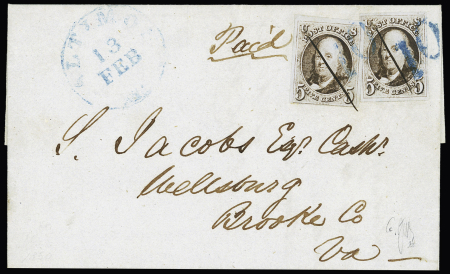 BALTIMORE
13
FEB
Paid
POST OFFICE
5 FIVE CENTS 5
POST OFFICE
5 FIVE CENTS 5
10
S. Jacobs Esqr. Cashr.
Wellsburg
Brooke Co
Va